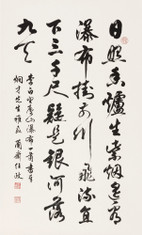 日照香爐生紫烟遙看
瀑布挂前川飛流直
下三千尺疑是銀河落
九天
李白望廬山瀑布一首書奉
炯才先生雅正 蘭齋任政